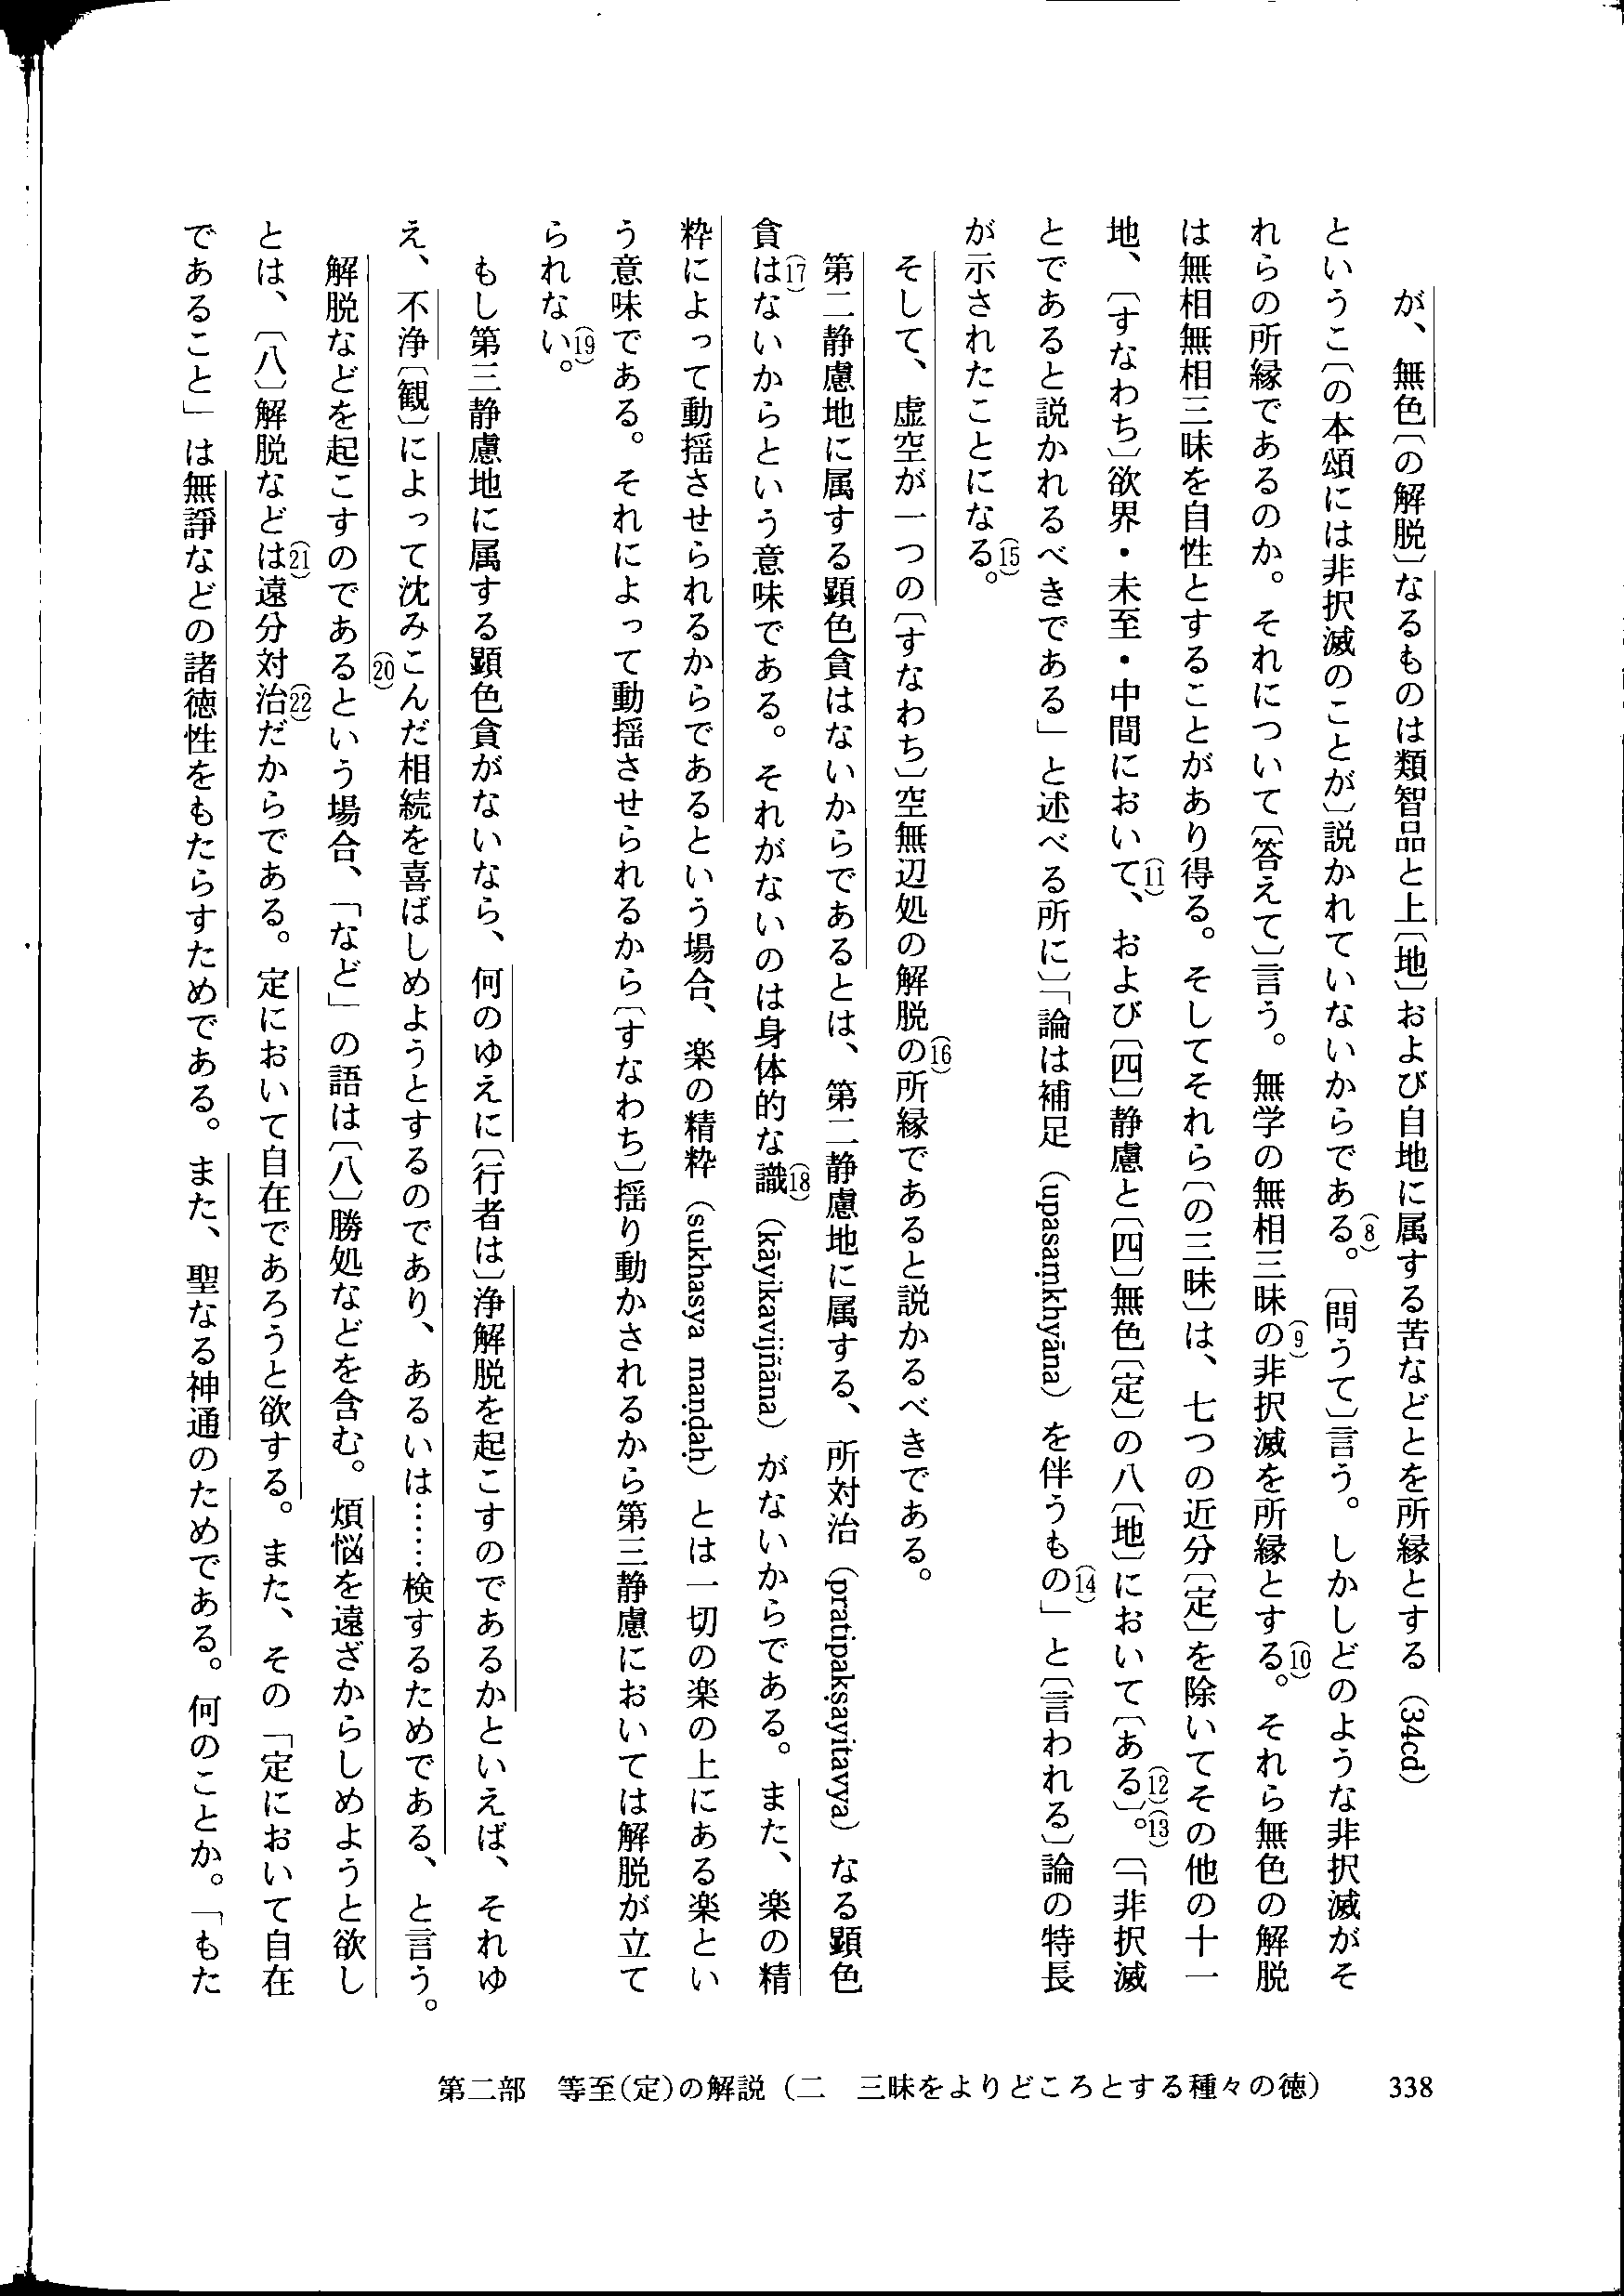 が、無色〔の解脱〕なるものは類智品と上〔地〕および自地に属する苦などとを所縁とする（34cd）
というこ〔の本頌には非択滅のことが〕説かれていないからである(8)。〔問うて〕言う。しかしどのような非択滅がそ
れらの所縁であるのか。それについて〔答えて〕言う。無学の無相三昧の(9)非択滅を所縁とする(10)。それら無色の解脱
は無相無相三昧を自性とすることがあり得る。そしてそれら〔の三昧〕は、七つの近分〔定〕を除いてその他の十一
地、〔すなわち〕欲界・未至・中間において(11)、および〔四〕静慮と〔四〕無色〔定〕の八〔地〕において〔ある(12)〕。(13)〔「非択滅
とであると説かれるべきである」と述べる所に〕「論は補足（upasaṃkhyāna）を伴うもの(14)」と〔言われる〕論の特長
が示されたことになる(15)。
そして、虚空が一つの〔すなわち〕空無辺処の解脱の(16)所縁であると説かるべきである。
第二静慮地に属する顕色貪はないからであるとは、第二静慮地に属する、所対治（pratipakṣayitavya）なる顕色
貪は(17)ないからという意味である。それがないのは身体的な識(18)（kāyikavijñāna）がないからである。また、楽の精
粋によって動揺させられるからであるという場合、楽の精粋（sukhasya maṇḍaḥ）とは一切の楽の上にある楽とい
う意味である。それによって動揺させられるから〔すなわち〕揺り動かされるから第三静慮においては解脱が立て
られない(19)。
もし第三静慮地に属する顕色貪がないなら、何のゆえに〔行者は〕浄解脱を起こすのであるかといえば、それゆ
え、不浄〔観〕によって沈みこんだ相続を喜ばしめようとするのであり、あるいは……検するためである、と言う。
解脱などを起こすのである(20)という場合、「など」の語は〔八〕勝処などを含む。煩悩を遠ざからしめようと欲し
とは、〔八〕解脱などは(21)遠分対治(22)だからである。定において自在であろうと欲する。また、その「定において自在
であること」は無諍などの諸徳性をもたらすためである。また、聖なる神通のためである。何のことか。「もた
第二部　等至(定)の解説（二　三昧をよりどころとする種々の徳）　338